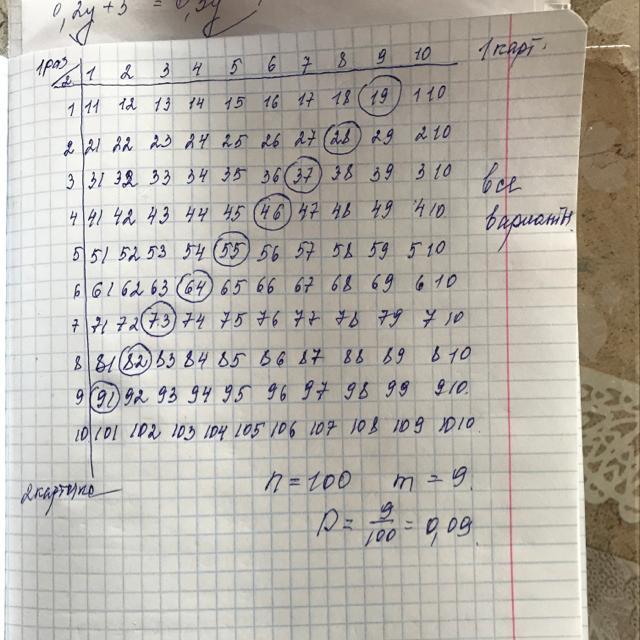 0,2y + 3 = 0,5y
1 раз 1 2 3 4 5 6 7 8 9 10 1 карт.
2
1 11 12 13 14 15 16 17 18 19 1 10
2 21 22 23 24 25 26 27 28 29 2 10
3 31 32 33 34 35 36 37 38 39 3 10 все
4 41 42 43 44 45 46 47 48 49 4 10 варианты
5 51 52 53 54 55 56 57 58 59 5 10
6 61 62 63 64 65 66 67 68 69 6 10
7 71 72 73 74 75 76 77 78 79 7 10
8 81 82 83 84 85 86 87 88 89 8 10
9 91 92 93 94 95 96 97 98 99 9 10.
10 101 102 103 104 105 106 107 108 109 10 10.
2 карточке n = 100 m = 9.
P = 9/100 = 0,09.